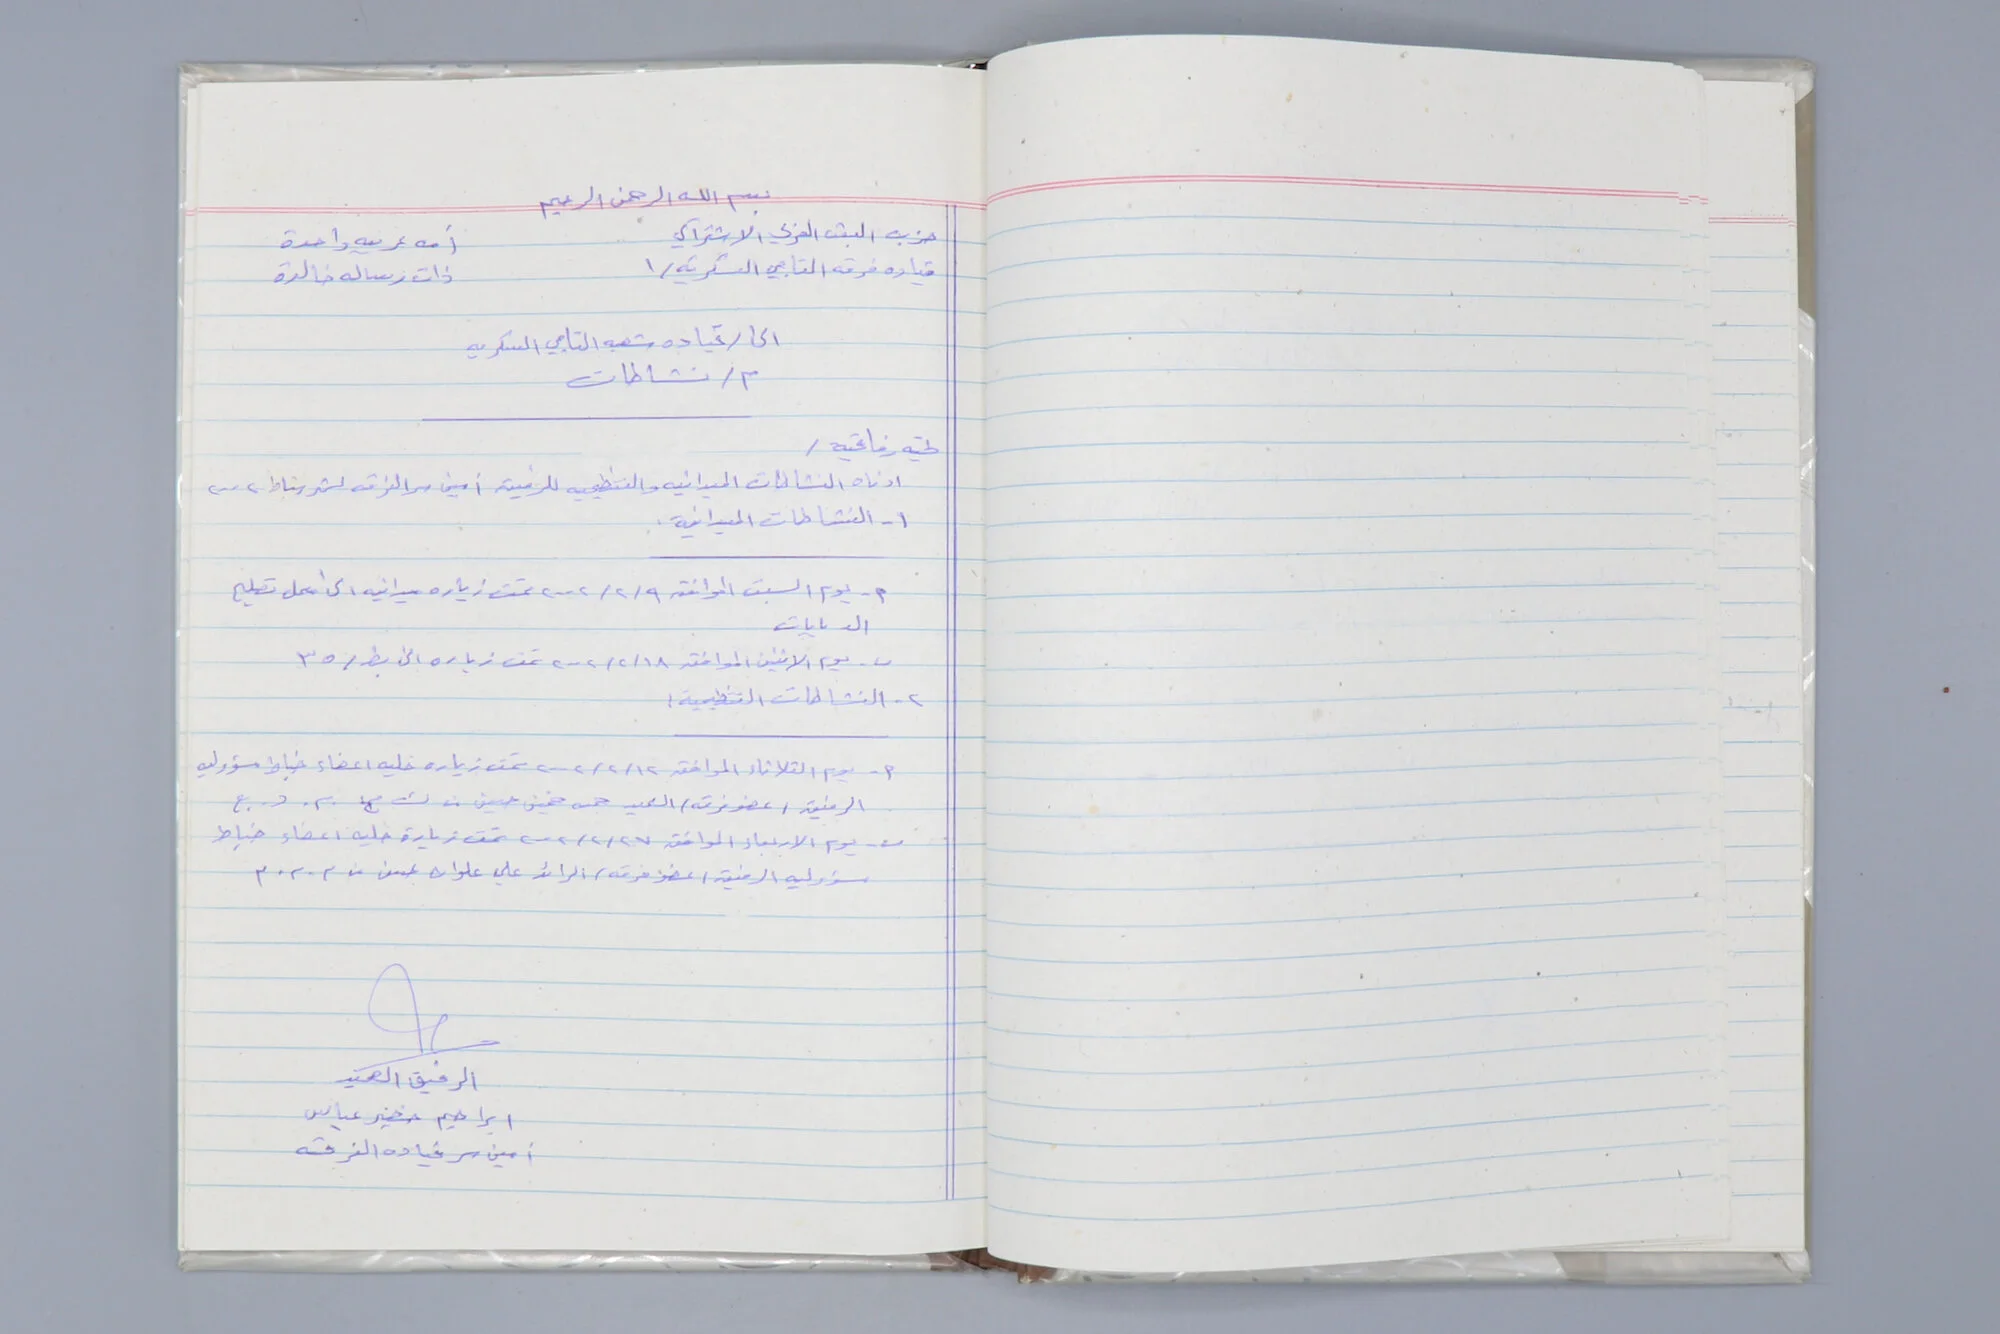 بسم الله الرحمن الرحيم
حزب البعث العربي الاشتراكي
أمه عربيه واحدة
قياده فرقه التاجي العسكريه/١
ذات رساله خالدة
الى/ قياده شعبه التاجي العسكريه
م/ نشاطات
تحيه رفاقية /
ادناه النشاطات الميدانيه والتنظيميه للرفيق أمين سر الفرقه لشهر شباط ٢٠٠٢
١- النشاطات الميدانية .
م- يوم السبت الموافق ٢٠٠٢/٢/٩ تمت زياره ميدانيه الى معمل تصليح
الدبابات
ب- يوم الاثنين الموافق ٢٠٠٢/٢/١٨ تمت زياره الى بط/ ٣٥
٢- النشاطات التنظيمية :
م- يوم الثلاثاء الموافق ٢٠٠٢/٢/١٢ تمت زياره خليه اعضاء ضباط مسؤوليه
الرفيق (عضو فرقه) العميد حسين
ب- يوم الاربعاء الموافق ٢٠٠٢/٢/٢٧ تمت زيارة خليه اعضاء ضباط
مسؤوليه الرفيق (عضو فرقه) الرائد علي علوان من م.م.م
الرفيق العميد
ابراهيم خضير عباس
أمين سر قياده الفرقه